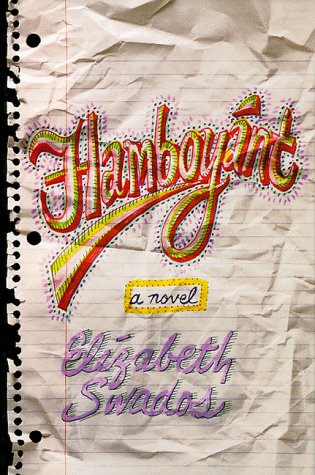 Flamboyant
a novel
Elizabeth
Swados